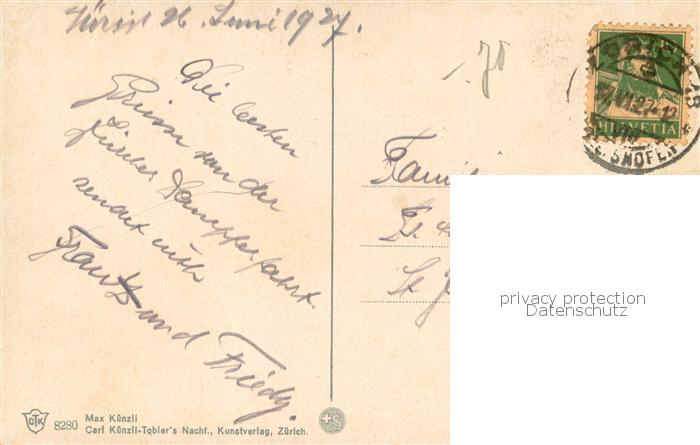 Zürich 26. Juni 1927.
Die besten
Grüsse von der
Zürcher Dampferfahrt.
sendet euch
Frantz und Friedy.
.70
HELVETIA
Famil
St.
privacy protection
Datenschutz
GTK
8280
Max Künzli
Carl Künzli-Tobler's Nachf., Kunstverlag, Zürich.
+S